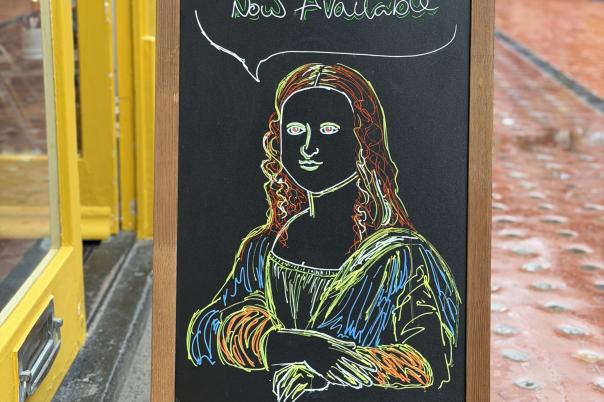 Now Available